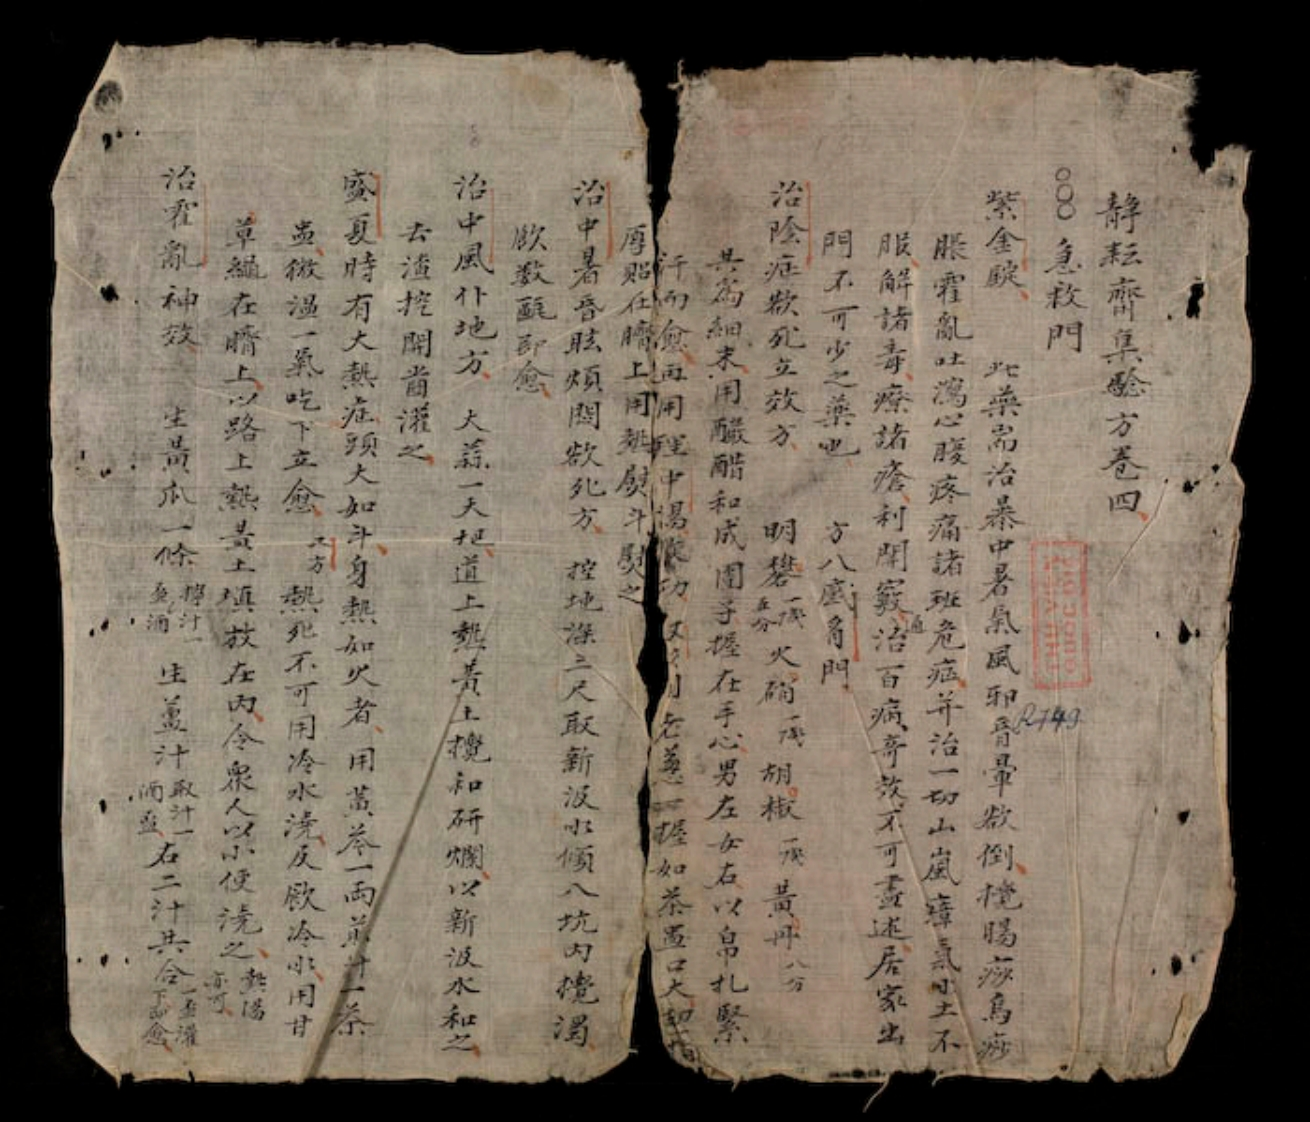 静耘齋集驗方卷四
急救門
紫金錠 此藥耑治暴中暑氣風邪昏暈欲倒攪腸痧烏痧
脹霍亂吐瀉心腹疼痛諸班危症并治一切山嵐瘴氣水土不
服解諸毒療諸瘡利開竅通治百病奇效不可盡述居家出
門不可少之藥也 方八感冐門
治陰症欲死立效方 明礬一錢五分火硝一錢胡椒一錢黃丹八分
共為細末用釅醋和成團子握在手心男左女右以帛扎緊
汗而愈再用理中湯 功 又方用老葱一握如茶盞口大切
厚貼在臍上用熱熨斗熨之
治中暑昏眩煩悶欲死方 挖地深三尺取新汲水傾入坑內攪濁
飲數甌即愈
治中風仆地方 大蒜一大把道上熱黃土攪和研爛以新汲水和之
去渣挖開齒灌之
盛夏時有大熱症頭大如斗身熱如火者用黃芩一兩煎汁一茶
盅微溫一氣吃下立愈 又方 熱死不可用冷水澆及飲冷水用甘
草繩在臍上以路上熱黃土填放在內令衆人以小便澆之熱湯亦可
治霍亂神效 生黃瓜一條擰汁一盃酒 生薑汁取汁一酒盃右二汁共合一盃灌下即愈
R749